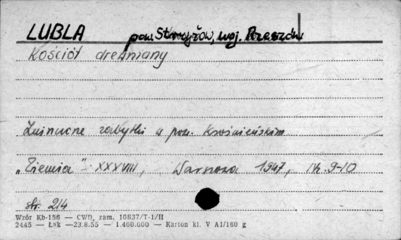 LUBLA pow. Strzyżów, woj. Rzeszów
Kościół drewniany
zabytki w pow. Krośnieńskim
„Ziemia" XXXVIII, Warszawa 1947, Nr. 9-10
str. 214
Wzór Kb-156 — CWD, zam. 10837/T-I/II
2445 — Łsk — 23.8.55 — 1.400.000 — Karton kl. V A1/160 g